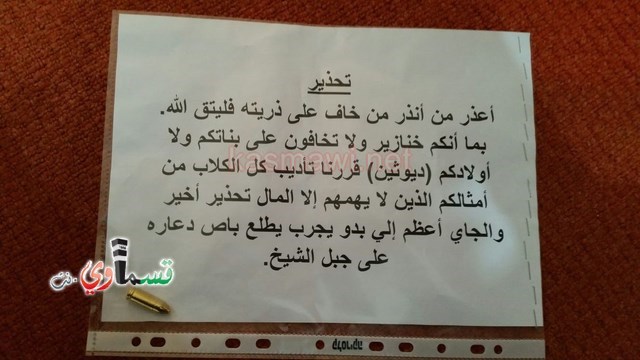 تحذير
أعذر من أنذر من خاف على ذريته فليتق الله.
بما أنكم خنازير ولا تخافون على بناتكم ولا
أولادكم (ديوثين) قررنا تاديب كل الكلاب من
أمثالكم الذين لا يهمهم إلا المال تحذير أخير
والجاي أعظم إلي بدو يجرب يطلع باص دعاره
على جبل الشيخ.
kasmawi.net
قسماوي.نت